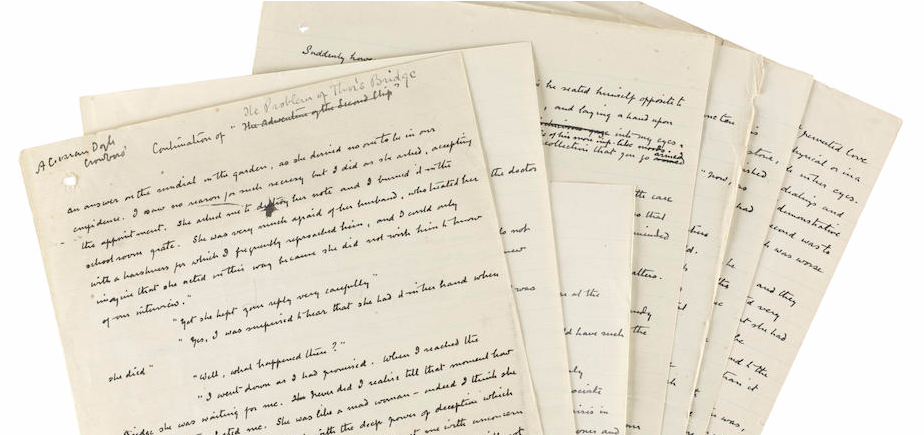 The Problem of Thor's Bridge
A Conan Doyle
Crowboro'
Continuation of "The Adventure of the Second Chip"
an answer on the sundial in the garden, as she desired no one to be in our
confidence. I saw no reason for such secrecy but I did as she asked, accepting
the appointment. She asked me to destroy her note and I burned it in the
school room grate. She was very much afraid of her husband, who treated her
with a harshness for which I frequently reproached him, and I could only
imagine that she acted in this way because she did not wish him to know
of our interview."
"Yet she kept your reply very carefully"
"Yes, I was surprised to hear that she had it in her hand when
she died"
"Well, what happened then?"
"I went down as I had promised. When I reached the
bridge she was waiting for me. Never did I realise till that moment how
hated me. She was like a mad woman – indeed I think she
with the deep power of deception which
me with unconcern
Suddenly how
he seated himself opposite to
, and laying a hand upon
into my eyes.
of his now imp-like moods
collection that you go armed
the doctor
the case
s that
do not
new
atters.
was
at the
ld have such
the
"Now,
had
repeated love
physical or in a
in her eyes.
dealings and
demonstrative
second was to
was worse
and they
very
she had
be
to the
than it
was,